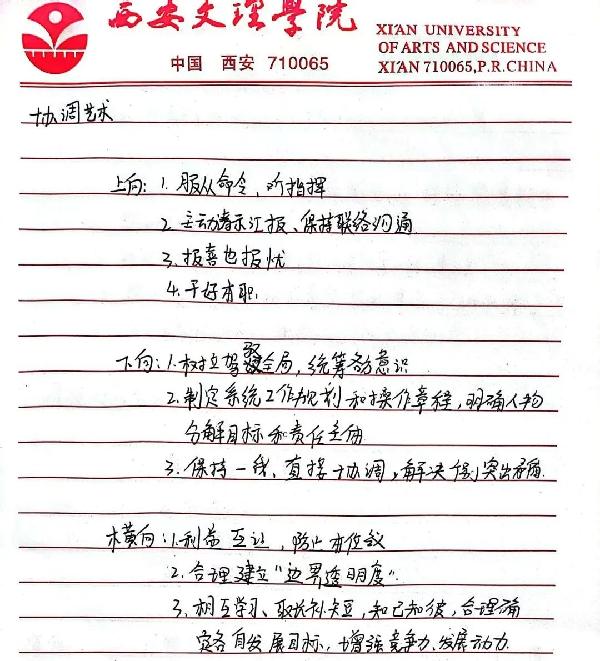 西安文理学院
XI'AN UNIVERSITY
OF ARTS AND SCIENCE
中国 西安 710065
XI'AN 710065,P.R.CHINA
协调艺术
上向：1.服从命令，听指挥
2.主动请示汇报、保持联络沟通
3.报喜也报忧
4.干好本职.
下向：1.树立驾驭全局，统筹各方意识
2.制定系统工作规划和操作章程，明确人物
分解目标和责任主体
3.保持一线、直接协调，解决突出矛盾.
横向：1.利益互让，防止本位主义
2.合理建立“边界透明度”.
3.相互学习、取长补短，知己知彼，合理确
定各自发展目标，增强竞争力、发展动力.